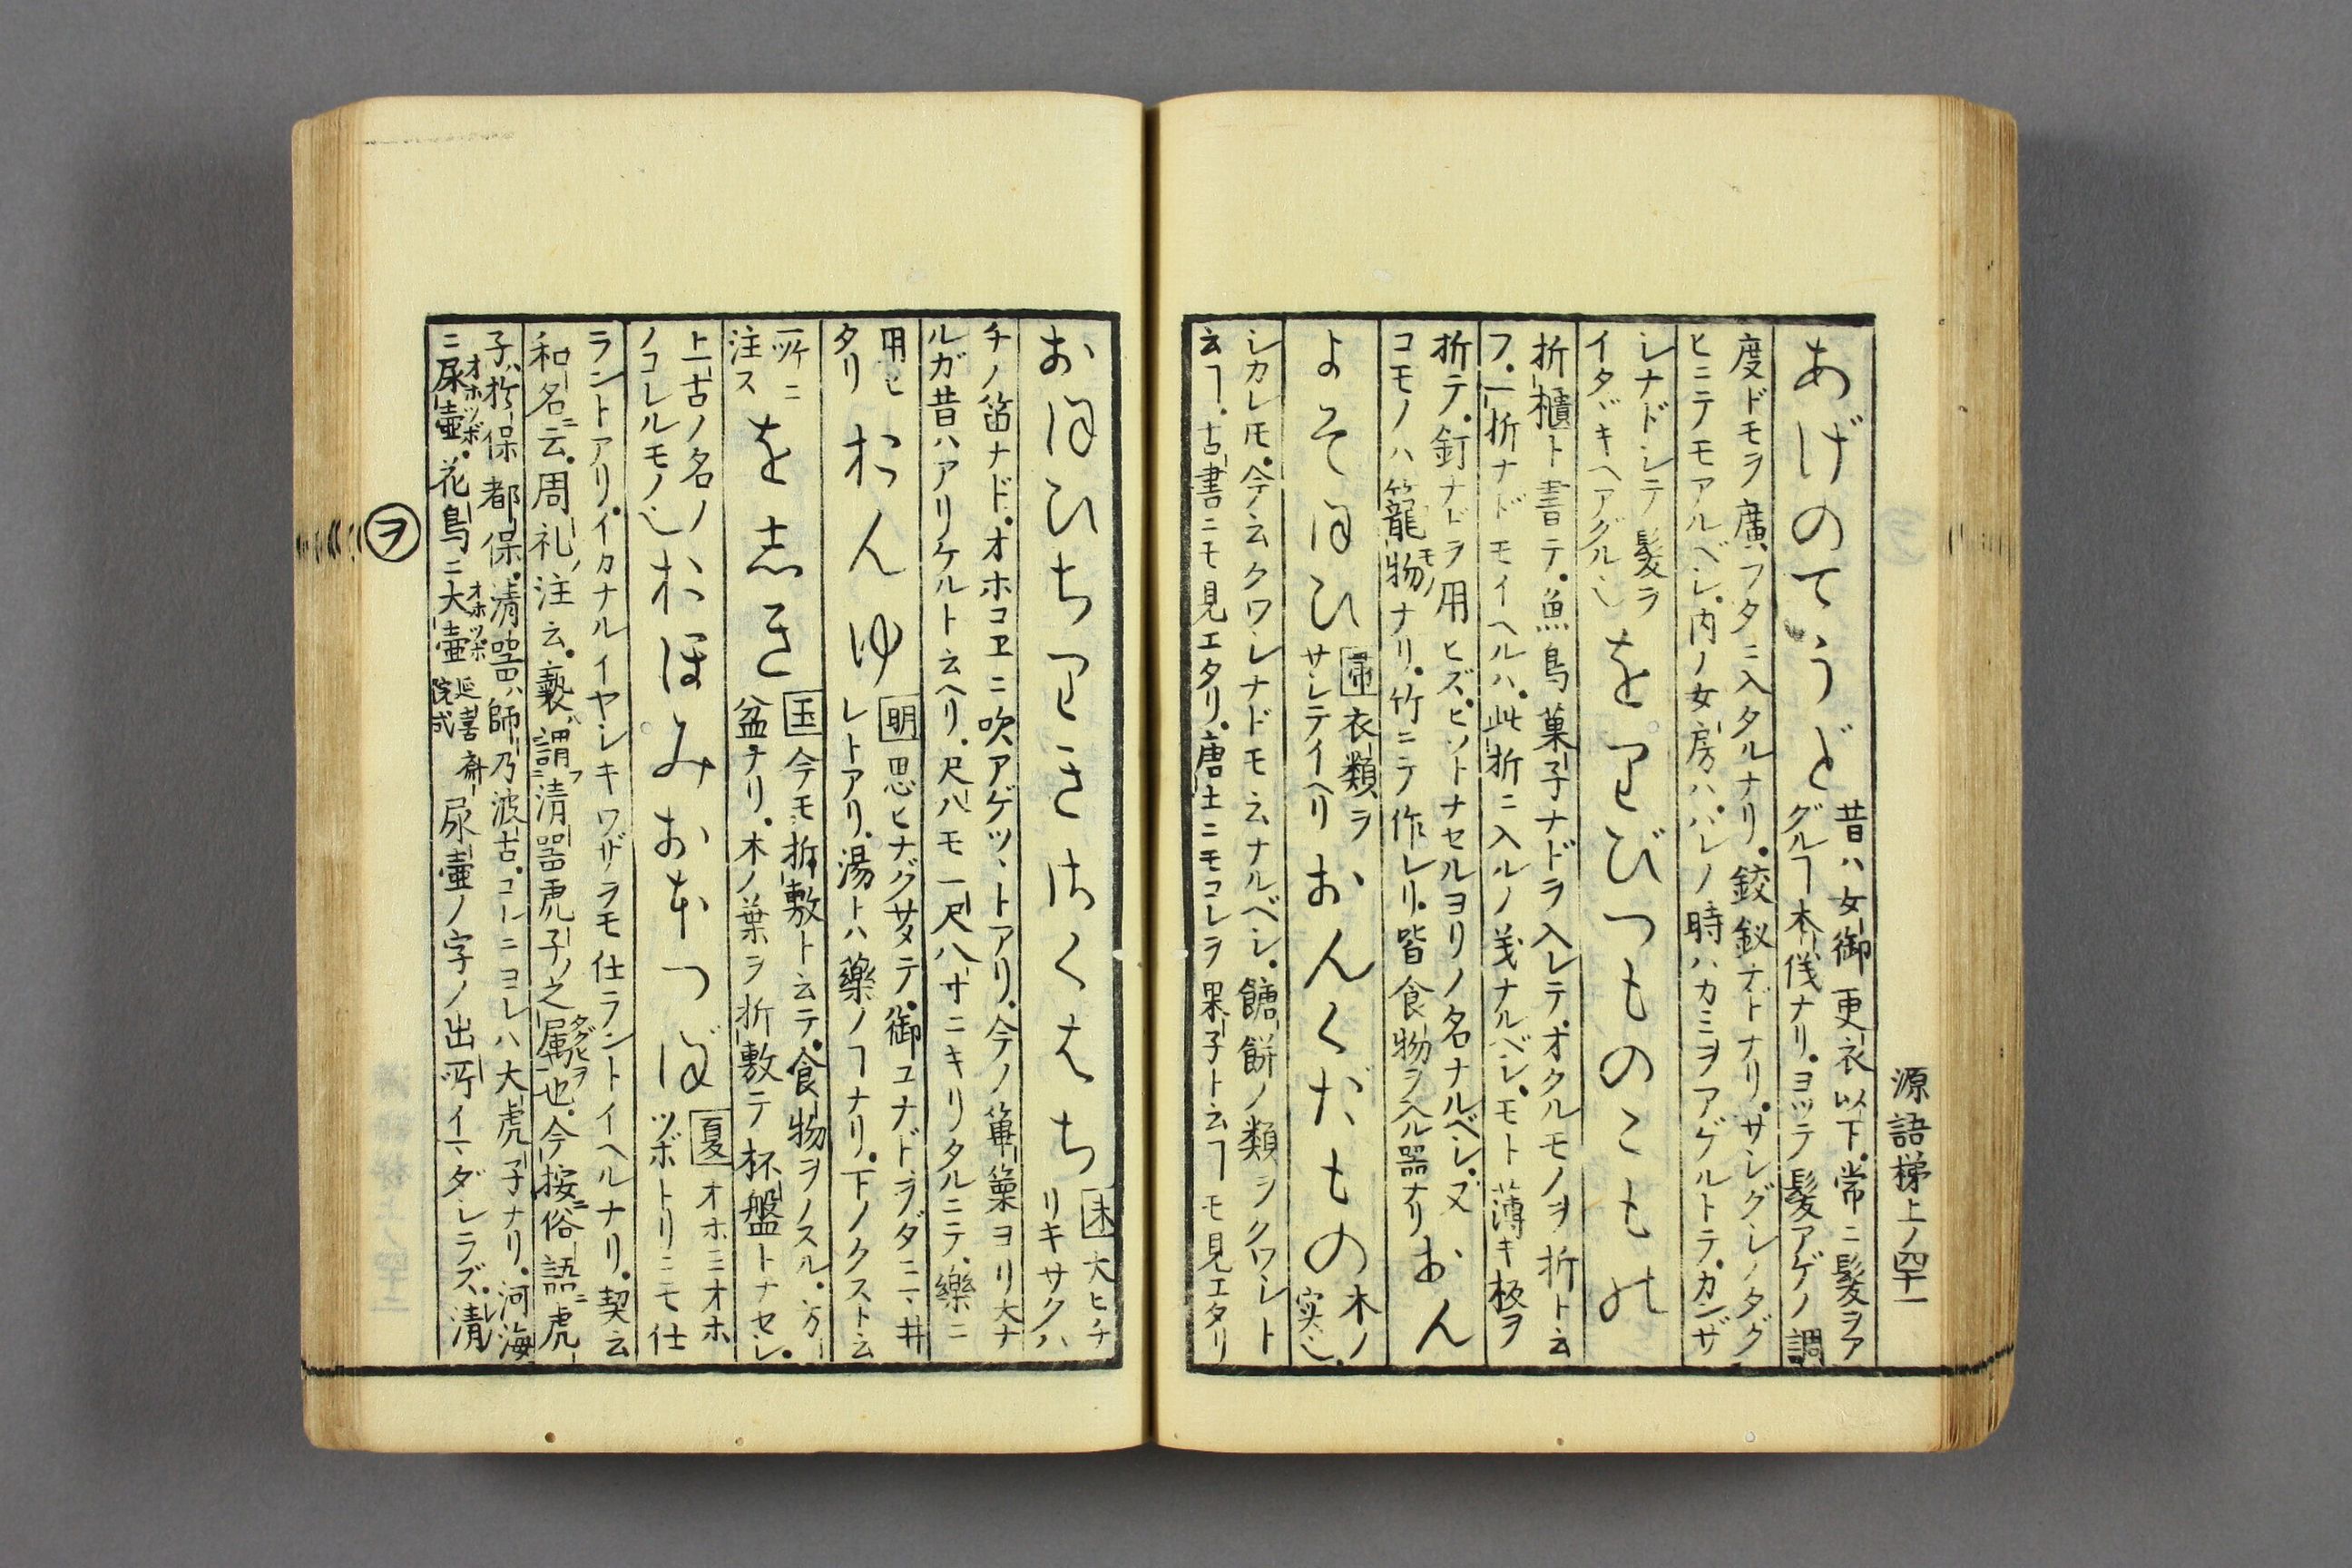 源語梯上ノ四十一
あげのてうど
昔ハ女御更衣以下常ニ髪ヲア
グルヿ本儀ナリ。ヨッテ髪アゲノ調
度ドモヲ廣フタニ入タルナリ。鈙釵ナドナリ。サシグシノタグ
ヒニテモアルベシ。内ノ女房ハ。ハレノ時ハカミヲアゲルトテ。カンザ
シナドシテ髪ヲ
イタヾキヘアグル也
をりびつものこもの
折櫃ト書テ。魚鳥菓子ナドヲ入レテ。オクルモノヲ折ト云
フ。一折ナドモイヘルハ。此折ニ入ルノ義ナルベシ。モト薄キ板ヲ
折テ。釘ナドヲ用ヒズ。ヒソトナセルヨリノ名ナルベシ。又
コモノハ籠物ナリ。竹ニテ作レリ。皆食物ヲ入ル器ナリ
モノ
おん
よそほひ
帚衣類ヲ
サシテイヘリ
おんくだもの
木ノ
実也。
シカレ𪜈。今云クワシナドモ云ナルベシ。餹餅ノ類ヲクワシト
云ヿ。古書ニモ見エタリ。唐土ニモコレヲ果子ト云ヿモ見エタリ
おほひちりきさくはち
末大ヒチ
リキサクハ
チノ笛ナド。オホコヱニ吹アゲツヽトアリ。今ノ篳篥ヨリ大ナ
ルガ昔ハアリケルト云ヘリ。尺八モ一尺八寸ニキリタルニテ。樂ニ
用ヒ
タリ
おんゆ
明思ヒナグサメテ。御ユナドヲダニマヰ
レトアリ。湯トハ藥ノヿナリ。下ノクスト云
所ニ
注ス
をしき
玉今モ折敷ト云テ。食物ヲノスル。方
盆ナリ。木ノ葉ヲ折敷テ杯盤トナセシ。
上古ノ名ノ
ノコレルモノ也
おほみおほつぼ
夏オホミオホ
ツボトリニモ仕
ラントアリ。イカナルイヤシキワザヲモ仕ラントイヘルナリ。契云
和名ニ云。周礼ノ注云。褻器ハ謂フ清器虎子ノ之属ヲ也。今按ニ俗語ニ虎
タグヒ
子ハ於保都保。清器ハ師乃波古。コレニヨレハ大虎子ナリ。河海
ニ尿壺。花鳥ニ大壺 延喜斎院式 尿壺ノ字ノ出所イマダシラズ。清
オホツボ
オホツボ
ヲ